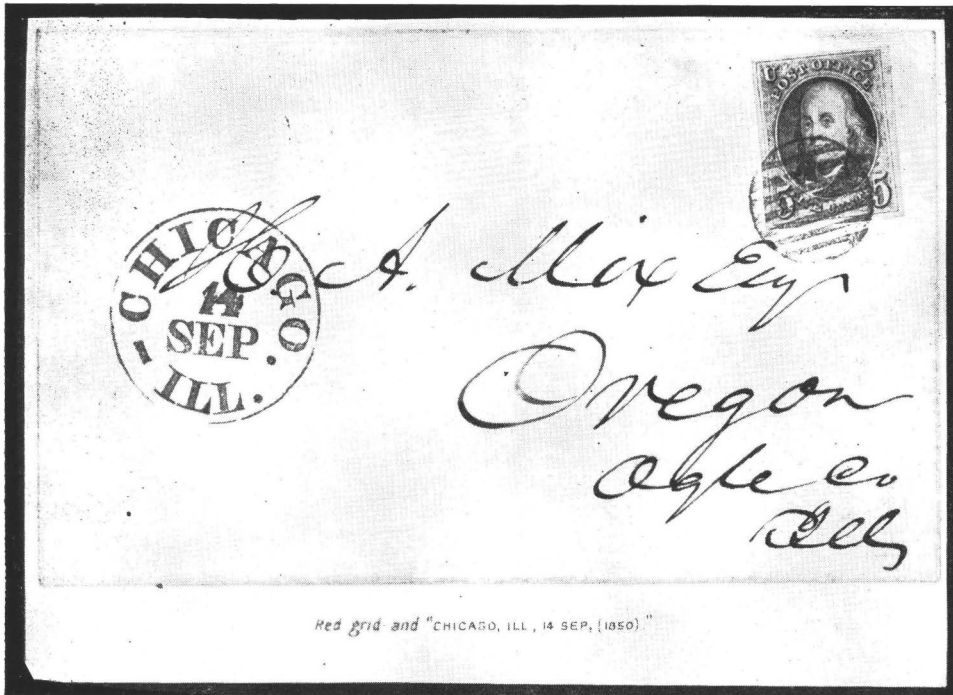 U S
POST OFFICE
5 5
CHICAGO
14
SEP.
ILL.
A. Mix Esqr
Oregon
Ogle Co
Ills
Red grid and "CHICAGO, ILL, 14 SEP, (1850)"